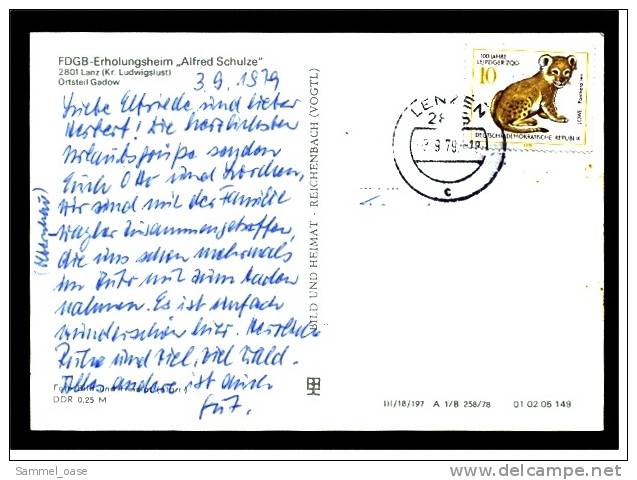 FDGB-Erholungsheim „Alfred Schulze"
2801 Lanz (Kr. Ludwigslust)
Ortsteil Gadow
3.9.1979
Liebe Elfriede und lieber
Herbert! Die herzlichsten
Urlaubsgrüße senden
Euch Otto und
wir sind mit der Familie
zusammengetroffen,
die uns schon mehrmals
im Auto mit zum baden
nahmen. Es ist einfach
wunderschön hier. Herrliche
Ruhe und viel, viel Wald.
Alles andere ist auch
gut.
DDR 0,25 M
BILD UND HEIMAT · REICHENBACH (VOGTL)
100 JAHRE
LEIPZIGER ZOO
10
LÖWE Panthera leo
DEUTSCHE DEMOKRATISCHE REPUBLIK
LENZEN
9.79
c
III/18/197 A 1/B 258/78 01 02 05 149
Sammel_oase
delcampe.net